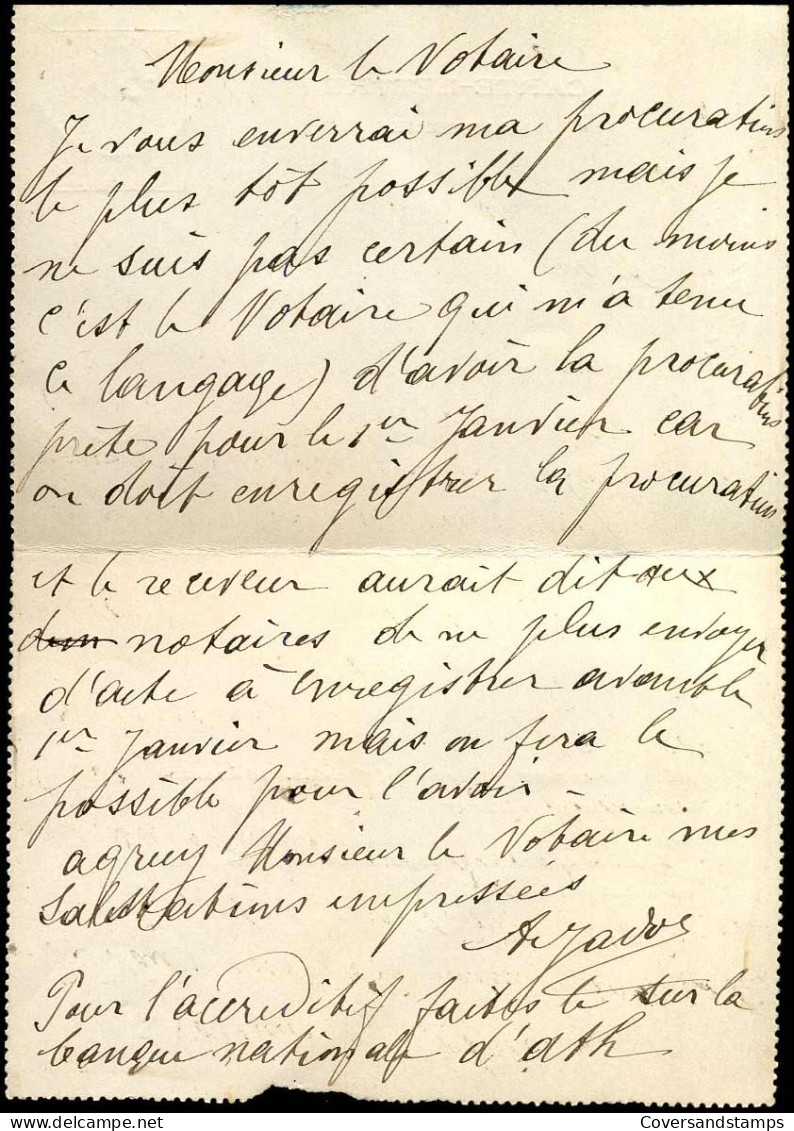 Monsieur le Notaire
Je vous enverrai ma procuration
le plus tôt possible mais je
ne suis pas certain (du moins
c'est le Notaire qui m'a tenu
ce langage) d'avoir la procuration
prête pour le 1er Janvier car
on doit enregistrer la procuration
et le receveur aurait dit aux
notaires de ne plus envoyer
d'acte à enregistrer avant le
1er Janvier mais on fera le
possible pour l'avoir -
agréez Monsieur le Notaire mes
Salutations empressées
Pour l'accréditif faites le sur la
banque nationale d'ath
CoversandStamps